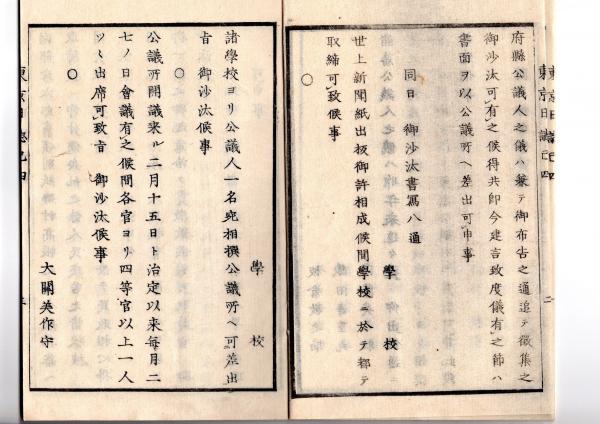 府縣公議人之儀ハ兼テ御布告之通追テ徴集之
御沙汰可有之候得共即今建言致度儀有之節ハ
書面ヲ以公議所ヘ差出可申事
同日 御沙汰書寫八通
學校
世上新聞紙出板御許相成候間學校ニ於テ都テ
取締可致候事
○
學校
諸學校ヨリ公議人一名宛相撰公議所ヘ可差出
旨 御沙汰候事
○
公議所開議來ル二月十五日ト治定以來每月二
七ノ日會議有之候間各官ヨリ四等官以上一人
ツヽ出席可致旨 御沙汰候事
○
大關美作守
東京日誌
東京日誌